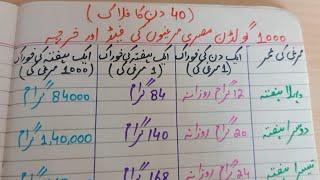 (40 دن کا فلاک)
1000 گولڈن مصری مرغیوں کی فیڈ اور خرچہ
مرغی کی عمر ایک دن کی خوراک (1 مرغی کی) ایک ہفتہ کی خوراک (1 مرغی کی) ایک ہفتہ کی خوراک (1000 مرغی کی)
پہلا ہفتہ 12 گرام روزانہ 84 گرام 84000 گرام
دوسرا ہفتہ 20 گرام روزانہ 140 گرام 1,40,000 گرام
تیسرا ہفتہ 24 گرام روزانہ 168 گرام